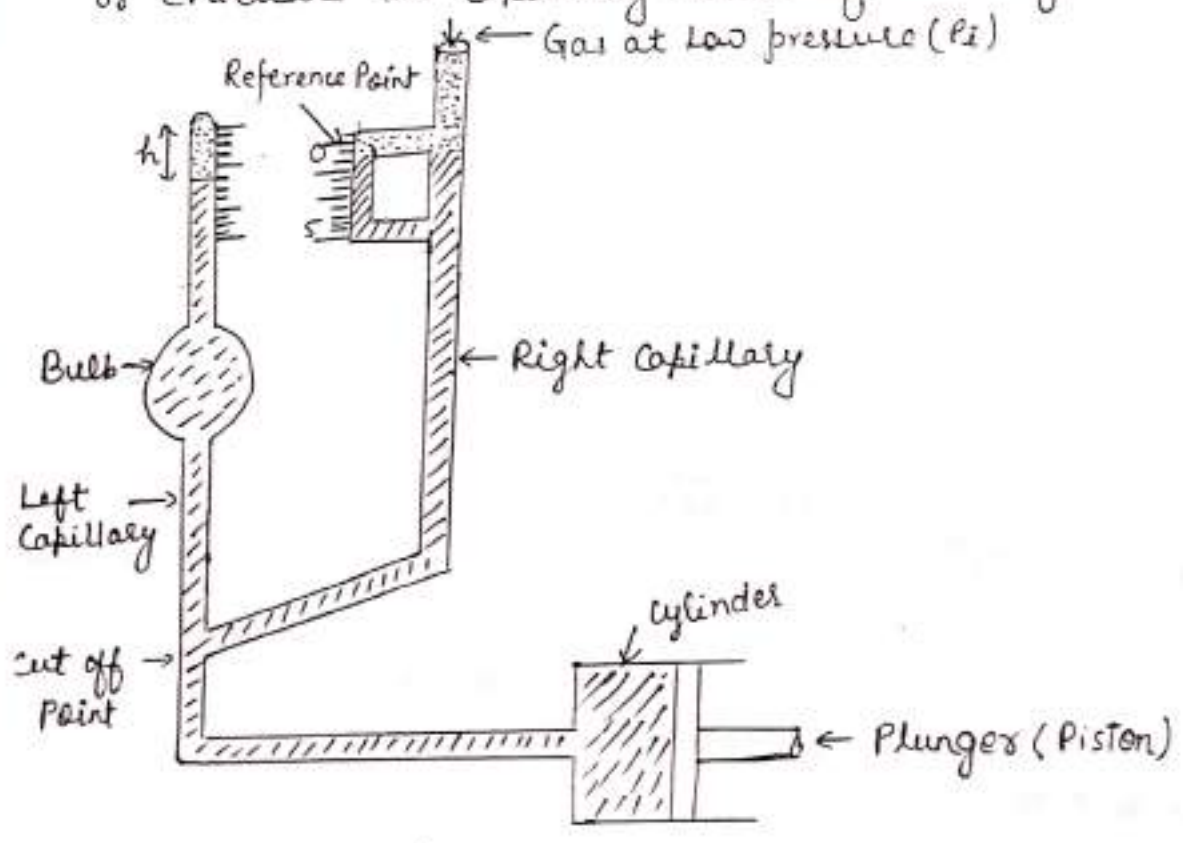 Gas at Low pressure (Pi)
Reference Point
h
0
5
Bulb
Right Capillary
Left
Capillary
Cylinder
Cut off
Point
Plunger (Piston)